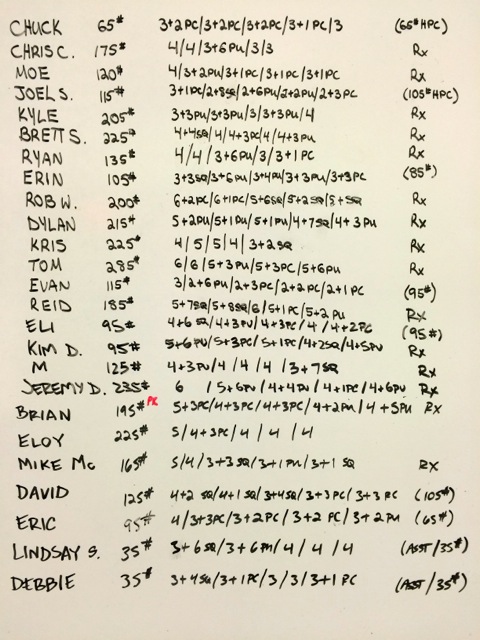 CHUCK 65# 3+2PC/3+2PC/3+2PC/3+1PC/3 (65# HPC)
CHRIS C. 175# 4/4/3+6PU/3/3 Rx
MOE 120# 4/3+2PU/3+1PC/3+1PC/3+1PC Rx
JOEL S. 115# 3+1PC/2+8SQ/2+6PU/2+2PU/2+3PC (105# HPC)
KYLE 205# 3+3PU/3+3PU/3/3+3PU/4 Rx
BRETT S. 225# 4+4SQ/4/4+3PC/4/4+3PU Rx
RYAN 135# 4/4/3+6PU/3/3+1PC Rx
ERIN 105# 3+3SQ/3+6PU/3+4PU/3+3PU/3+3PC (85#)
ROB W. 200# 6+2PC/6+1PC/5+6SQ/5+2SQ/5+5SQ Rx
DYLAN 215# 5+2PU/5+1PU/5+1PU/4+7SQ/4+3PU Rx
KRIS 225# 4/5/5/4/3+2SQ Rx
TOM 285# 6/6/5+3PU/5+3PC/5+6PU Rx
EVAN 115# 3/2+6PU/2+3PC/2+2PC/2+1PC (95#)
REID 185# 5+7SQ/5+8SQ/6/5+1PC/5+2PU Rx
ELI 95# 4+6SQ/4+3PU/4+3PC/4/4+2PC (95#)
KIM D. 95# 5+6PU/5+3PC/5+1PC/4+2SQ/4+5PU Rx
M 125# 4+3PU/4/4/4/3+7SQ Rx
JEREMY D. 235# 6/5+6PU/4+4PU/4+1PC/4+6PU Rx
BRIAN 195# PR 5+3PC/4+3PC/4+3PC/4+2PU/4+5PU Rx
ELOY 225# 5/4+3PC/4/4/4
MIKE Mc 165# 5/4/3+3SQ/3+1PU/3+1SQ Rx
DAVID 125# 4+2SQ/4+1SQ/3+4SQ/3+3PC/3+3PC (105#)
ERIC 95# 4/3+3PC/3+2PC/3+2PC/3+2PU (65#)
LINDSAY S. 35# 3+6SQ/3+6PU/4/4/4 (ASST/35#)
DEBBIE 35# 3+4SQ/3+1PC/3/3/3+1PC (ASST/35#)